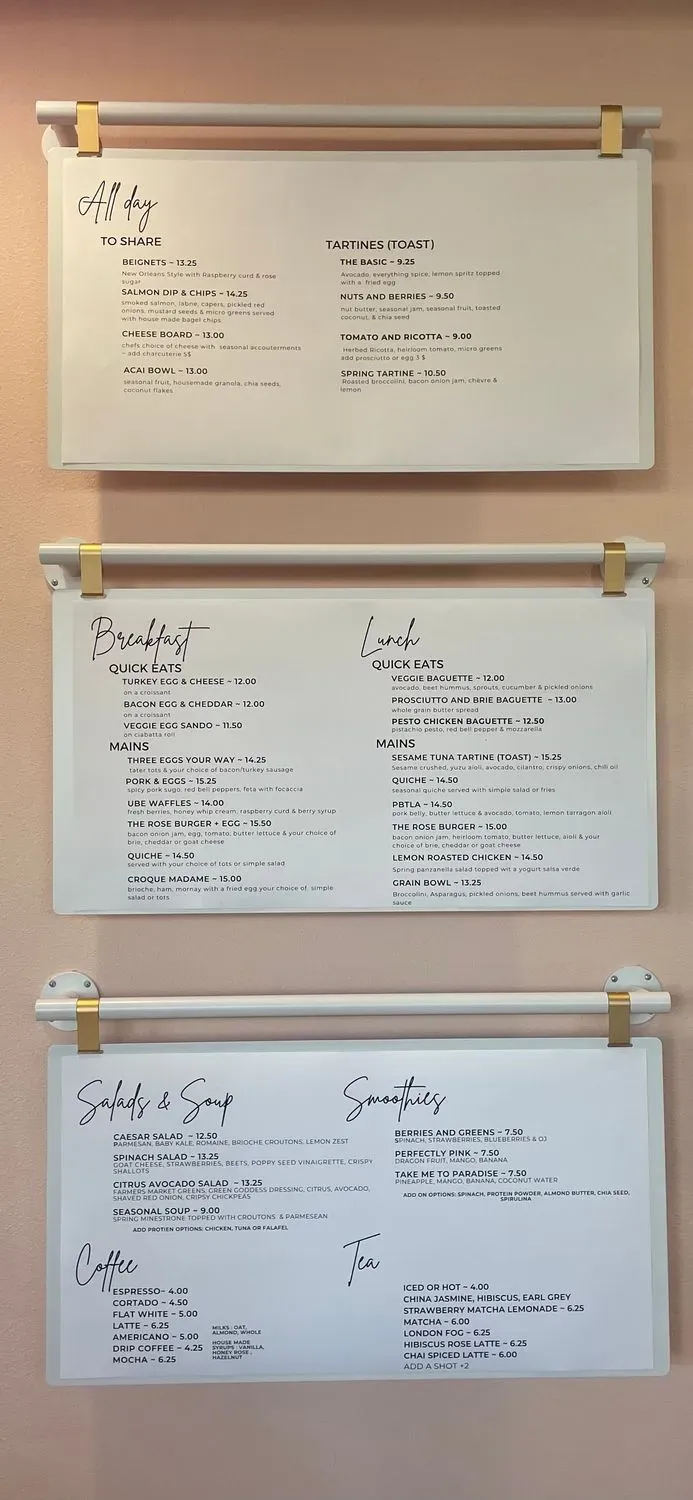 All day
TO SHARE
BEIGNETS ~ 13.25
New Orleans Style with Raspberry curd & rose
sugar
SALMON DIP & CHIPS ~ 14.25
smoked salmon, labne, capers, pickled red
onions, mustard seeds & micro greens served
with house made bagel chips
CHEESE BOARD ~ 13.00
chefs choice of cheese with seasonal accouterments
~ add charcuterie 5$
ACAI BOWL ~ 13.00
seasonal fruit, housemade granola, chia seeds,
coconut flakes
TARTINES (TOAST)
THE BASIC ~ 9.25
Avocado, everything spice, lemon spritz topped
with a fried egg
NUTS AND BERRIES ~ 9.50
nut butter, seasonal jam, seasonal fruit, toasted
coconut, & chia seed
TOMATO AND RICOTTA ~ 9.00
Herbed Ricotta, heirloom tomato, micro greens
add prosciutto or egg 3 $
SPRING TARTINE ~ 10.50
Roasted broccolini, bacon onion jam, chèvre &
lemon
Breakfast
QUICK EATS
TURKEY EGG & CHEESE ~ 12.00
on a croissant
BACON EGG AND CHEDDAR ~ 12.00
on a croissant
VEGGIE EGG SANDO ~ 11.50
on ciabatta roll
MAINS
THREE EGGS YOUR WAY ~ 14.25
tater tots & your choice of bacon/turkey sausage
PORK & EGGS ~ 15.25
spicy pork sugo, red bell peppers, feta with focaccia
UBE WAFFLES ~ 14.00
fresh berries, honey whip cream, raspberry curd & berry syrup
THE ROSE BURGER + EGG ~ 15.50
bacon onion jam, egg, tomato, butter lettuce & your choice of
brie, cheddar or goat cheese
QUICHE ~ 14.50
served with your choice of tots or simple salad
CROQUE MADAME ~ 15.00
brioche, ham, mornay with a fried egg your choice of simple
salad or tots
Lunch
QUICK EATS
VEGGIE BAGUETTE ~ 12.00
avocado, beet hummus, sprouts, cucumber & pickled onions
PROSCIUTTO AND BRIE BAGUETTE ~ 13.00
whole grain butter spread
PESTO CHICKEN BAGUETTE ~ 12.50
pistachio pesto, red bell pepper & mozzarella
MAINS
SESAME TUNA TARTINE (TOAST) ~ 15.25
Sesame crushed, yuzu aioli, avocado, cilantro, crispy onions, chili oil
QUICHE ~ 14.50
seasonal quiche served with simple salad or fries
PBTLA ~ 14.50
pork belly, butter lettuce & avocado, tomato, lemon tarragon aioli
THE ROSE BURGER ~ 15.00
bacon onion jam, heirloom tomato, butter lettuce, aioli & your
choice of brie, cheddar or goat cheese
LEMON ROASTED CHICKEN ~ 14.50
Spring panzanella salad topped wit a yogurt salsa verde
GRAIN BOWL ~ 13.25
Broccolini, Asparagus, pickled onions, beet hummus served with garlic
sauce
Salads & Soup
CAESAR SALAD ~ 12.50
PARMESAN, BABY KALE, ROMAINE, BRIOCHE CROUTONS, LEMON ZEST
SPINACH SALAD ~ 13.25
GOAT CHEESE, STRAWBERRIES, BEETS, POPPY SEED VINAIGRETTE, CRISPY
SHALLOTS
CITRUS AVOCADO SALAD ~ 13.25
FARMERS MARKET GREENS, GREEN GODDESS DRESSING, CITRUS, AVOCADO,
SHAVED RED ONION, CRIPSY CHICKPEAS
SEASONAL SOUP ~ 9.00
SPRING MINESTRONE TOPPED WITH CROUTONS & PARMESEAN
ADD PROTIEN OPTIONS: CHICKEN, TUNA OR FALAFEL
Smoothies
BERRIES AND GREENS ~ 7.50
SPINACH, STRAWBERRIES, BLUEBERRIES & OJ
PERFECTLY PINK ~ 7.50
DRAGON FRUIT, MANGO, BANANA
TAKE ME TO PARADISE ~ 7.50
PINEAPPLE, MANGO, BANANA, COCONUT WATER
ADD ON OPTIONS: SPINACH, PROTEIN POWDER, ALMOND BUTTER, CHIA SEED,
SPIRULINA
Coffee
ESPRESSO~ 4.00
CORTADO ~ 4.50
FLAT WHITE ~ 5.00
LATTE ~ 6.25
AMERICANO ~ 5.00
DRIP COFFEE ~ 4.25
MOCHA ~ 6.25
MILKS : OAT,
ALMOND, WHOLE
HOUSE MADE
SYRUPS : VANILLA,
HONEY ROSE ,
HAZELNUT
Tea
ICED OR HOT ~ 4.00
CHINA JASMINE, HIBISCUS, EARL GREY
STRAWBERRY MATCHA LEMONADE ~ 6.25
MATCHA ~ 6.00
LONDON FOG ~ 6.25
HIBISCUS ROSE LATTE ~ 6.25
CHAI SPICED LATTE ~ 6.00
ADD A SHOT +2